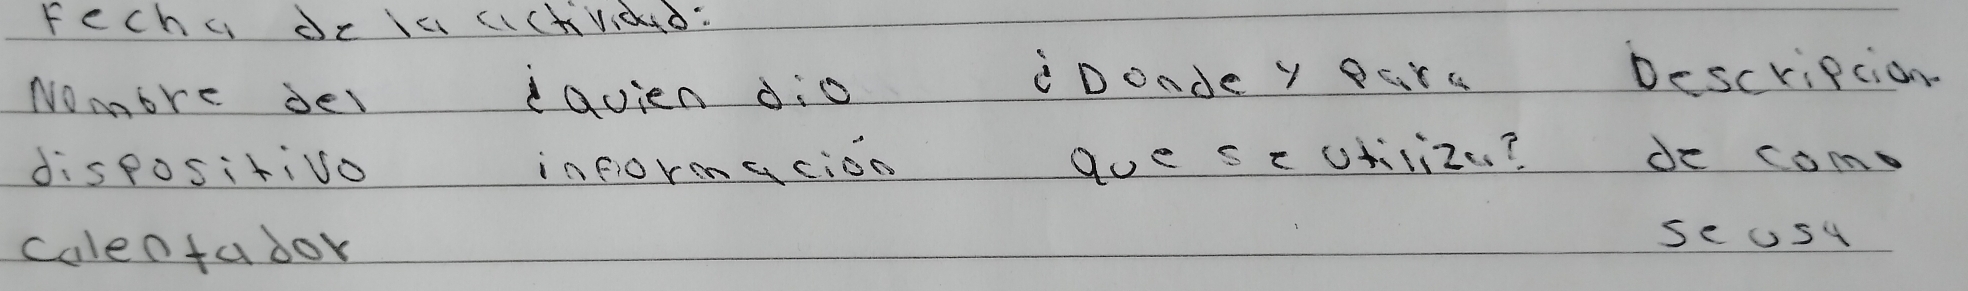 Fecha de la actividad:
Nombre del ¿quien dio ¿Donde y para Descripcion
dispositivo información que se utiliza? de como
calentador se usa